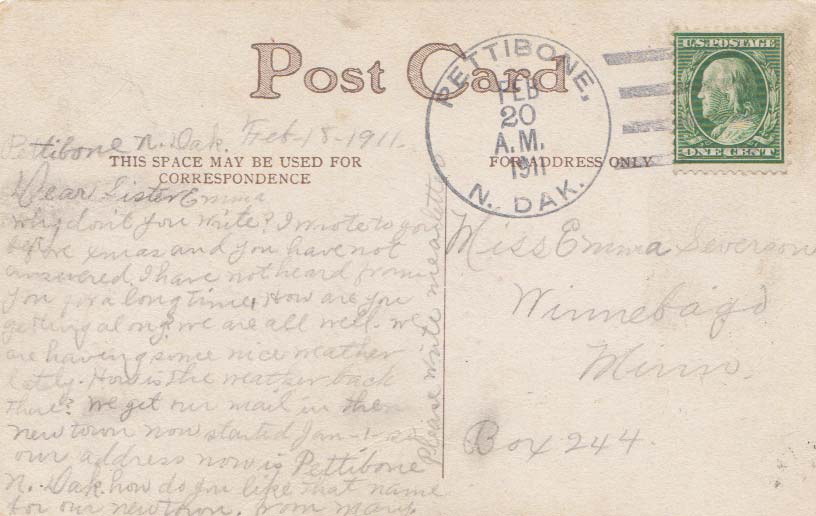 Post Card
PETTIBONE,
FEB
20
A.M.
1911
N. DAK.
U.S. POSTAGE
ONE CENT
THIS SPACE MAY BE USED FOR
CORRESPONDENCE
FOR ADDRESS ONLY
Pettibone N. Dak. Feb-18-1911.
Dear Sister Emma
Why don't you write? I wrote to you
before xmas and you have not
answered. I have not heard from
you for a long time. How are you
getting along. we are all well. we
are having some nice weather
lately. How is the weather back
there? We get our mail in the
new town now started Jan-1- so
our address now is Pettibone
N. Dak. how do you like that name
for our new town. from Mary.
Please write me a letter
Miss Emma Severson
Winnebago
Minn.
Box 244.